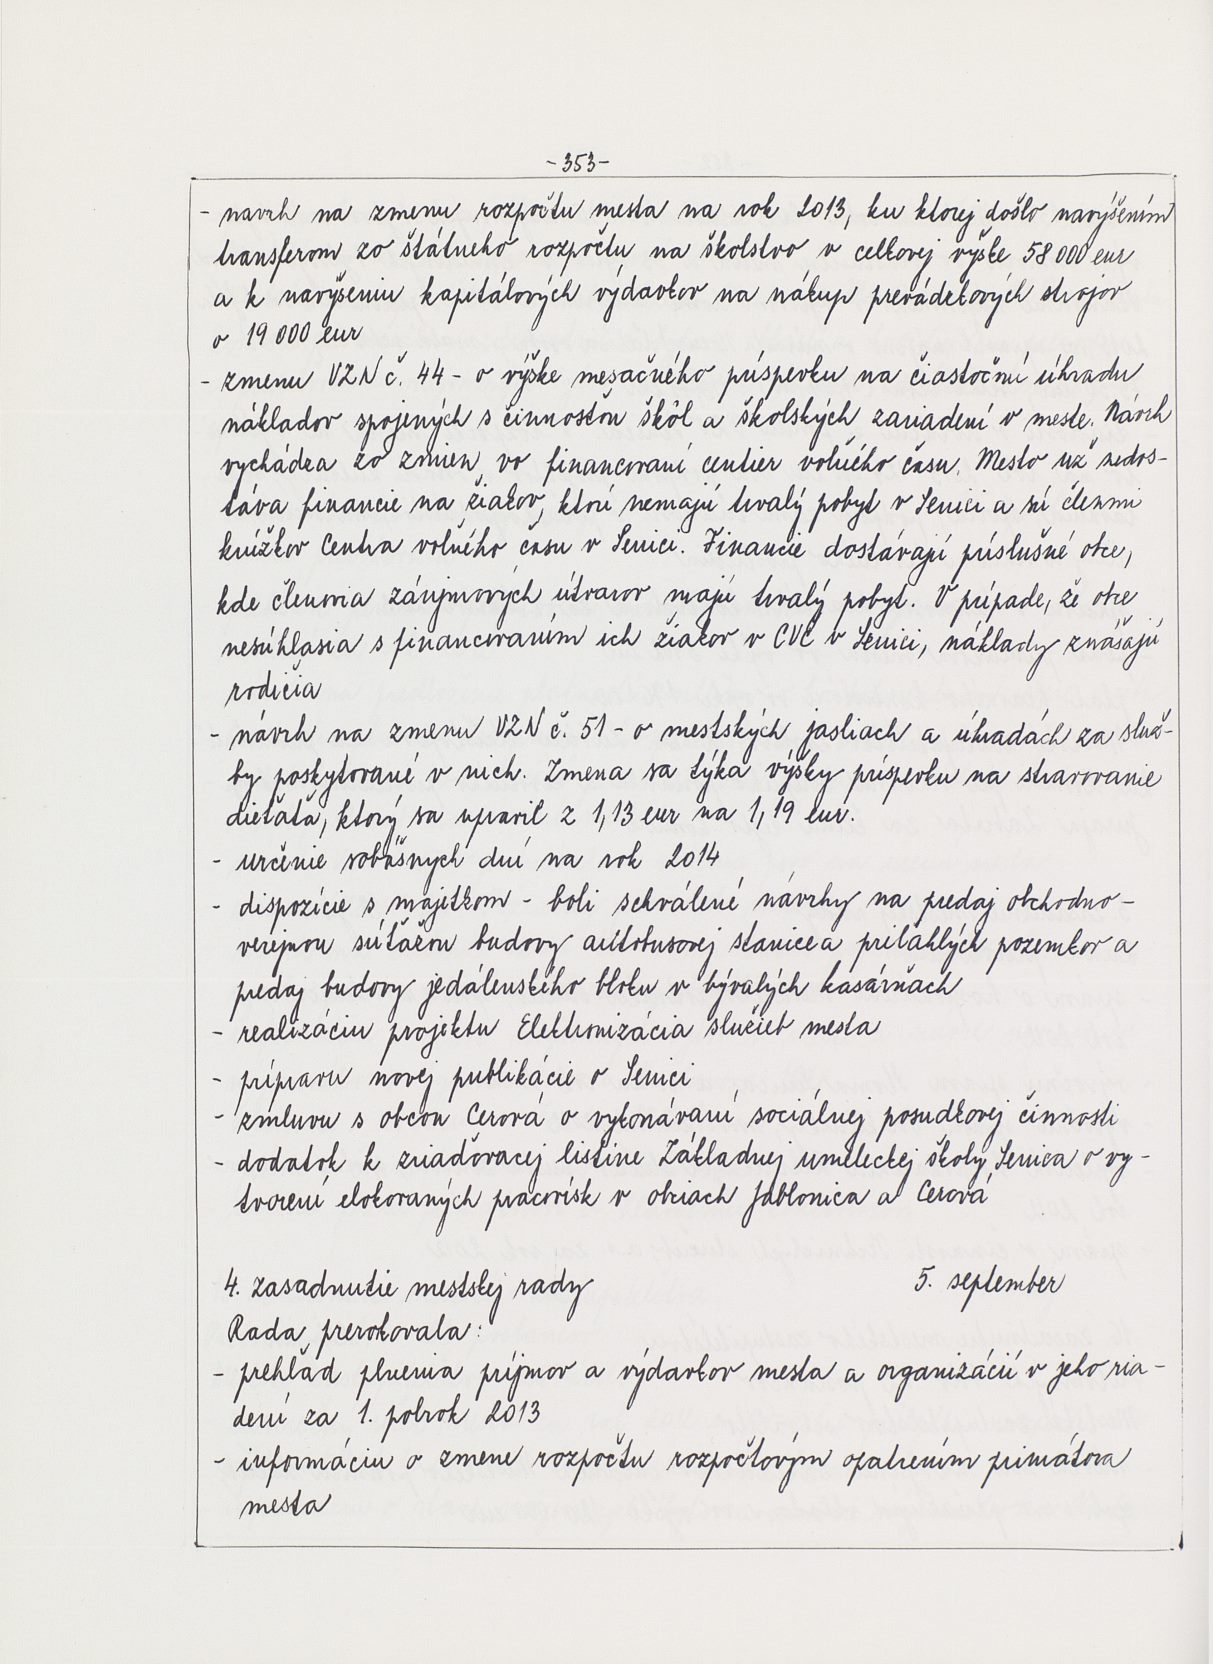 - 353 -
- navrh na zmenu rozpočtu mesta na rok 2013, ku ktorej došlo navýšením
transferom zo štátneho rozpočtu na školstvo v celkovej výške 58 000 eur
a k navýšeniu kapitálových výdavkov na nákup prevádzkových strojov
o 19 000 eur
- zmenu VZN č. 44 - o výške mesačného príspevku na čiastočnú úhradu
nákladov spojených s činnosťou škôl a školských zariadení v meste. Návrh
vychádza zo zmien vo financovaní centier voľného času. Mesto už nedos-
táva financie na žiakov, ktorí nemajú trvalý pobyt v Senici a sú členmi
krúžkov Centra voľného času v Senici. Financie dostávajú príslušné obce,
kde členovia záujmových útvarov majú trvalý pobyt. V prípade, že obce
nesúhlasia s financovaním ich žiakov v CVČ v Senici, náklady znášajú
rodičia
- návrh na zmenu VZN č. 51 - o mestských jasliach a úhradách za služ-
by poskytované v nich. Zmena sa týka výšky príspevku na stravovanie
dieťaťa, ktorý sa upravil z 1,13 eur na 1,19 eur.
- určenie sobášnych dní na rok 2014
- dispozície s majetkom - boli schválené návrhy na predaj obchodno-
verejnou súťažou budovy autobusovej stanice a priľahlých pozemkov a
predaj budovy jedálenského bloku v bývalých kasárňach
- realizáciu projektu Elektronizácia služieb mesta
- prípravu novej publikácie o Senici
- zmluvu s obcou Cerová o vykonávaní sociálnej posudkovej činnosti
- dodatok k zriaďovacej listine Základnej umeleckej školy Senica o vy-
tvorení elokovaných pracovísk v obciach Jablonica a Cerová
4. zasadnutie mestskej rady 5. september
Rada prerokovala:
- prehľad plnenia príjmov a výdavkov mesta a organizácií v jeho ria-
dení za 1. polrok 2013
- informáciu o zmene rozpočtu rozpočtovým opatrením primátora
mesta